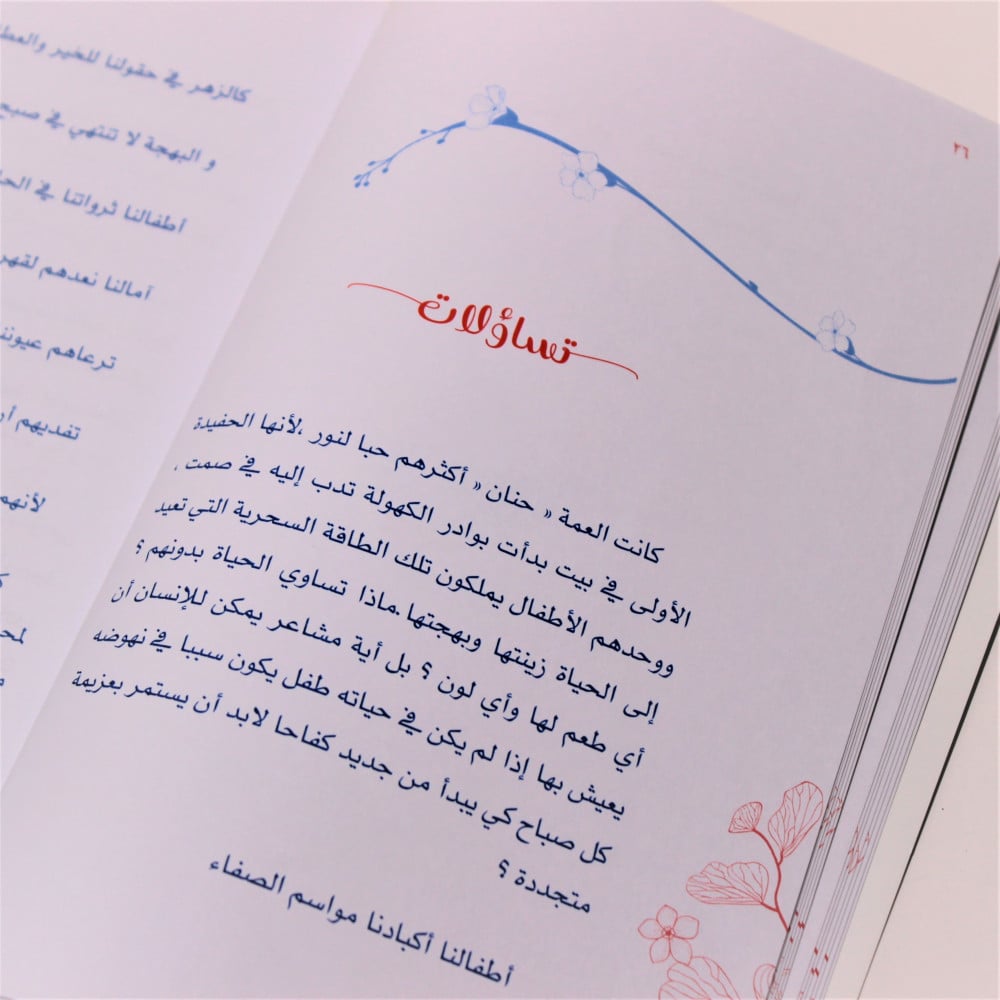 ٢٦
تساؤلات
كانت العمة « حنان » أكثرهم حبا لنور ،لأنها الحفيدة
الأولى في بيت بدأت بوادر الكهولة تدب إليه في صمت ،
ووحدهم الأطفال يملكون تلك الطاقة السحرية التي تعيد
إلى الحياة زينتها وبهجتها.ماذا تساوي الحياة بدونهم ؟
أي طعم لها وأي لون ؟ بل أية مشاعر يمكن للإنسان أن
يعيش بها إذا لم يكن في حياته طفل يكون سببا في نهوضه
كل صباح كي يبدأ من جديد كفاحا لابد أن يستمر بعزيمة
متجددة ؟
أطفالنا أكبادنا مواسم الصفاء
كالزهر في حقولنا للخير
و البهجة لا تنتهي في
أطفالنا ثرواتنا في
آمالنا نعدهم
ترعاهم
تفديهم
لأنهم